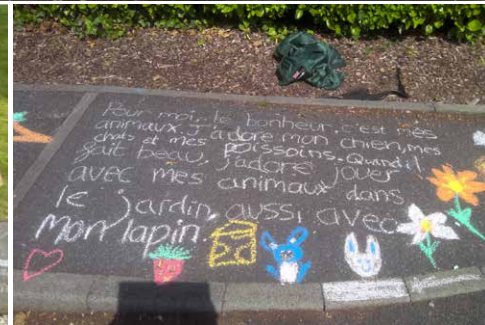 Pour moi, le bonheur, c'est mes
animaux. J'adore mon chien, mes
chats et mes poissoins. Quand il
fait beau, j'adore jouer
avec mes animaux dans
le jardin, aussi avec
mon lapin.